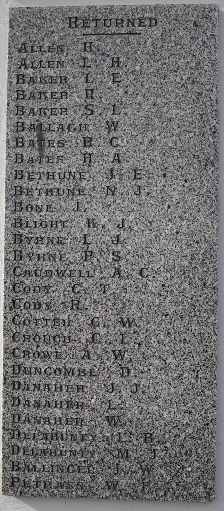 RETURNED
ALLEN H.
ALLEN L H.
BAKER L E
BAKER H
BAKER S L
BALLAGH W
BATES B C.
BATES H A
BETHUNE J E
BETHUNE N J.
BONE L
BLIGHT K. J.
BYRNE L J
BYRNE P S
CAUDWELL A C
CODY C T
CODY R.
COTTER G. W.
CROUCH C L
CROWE A. W.
DUNCOMBE D.
DANAHER J J
DANAHER L
DANAHER W.
DELAHUNTY L B.
DELAHUNTY M J
BALLINGER J W
W F